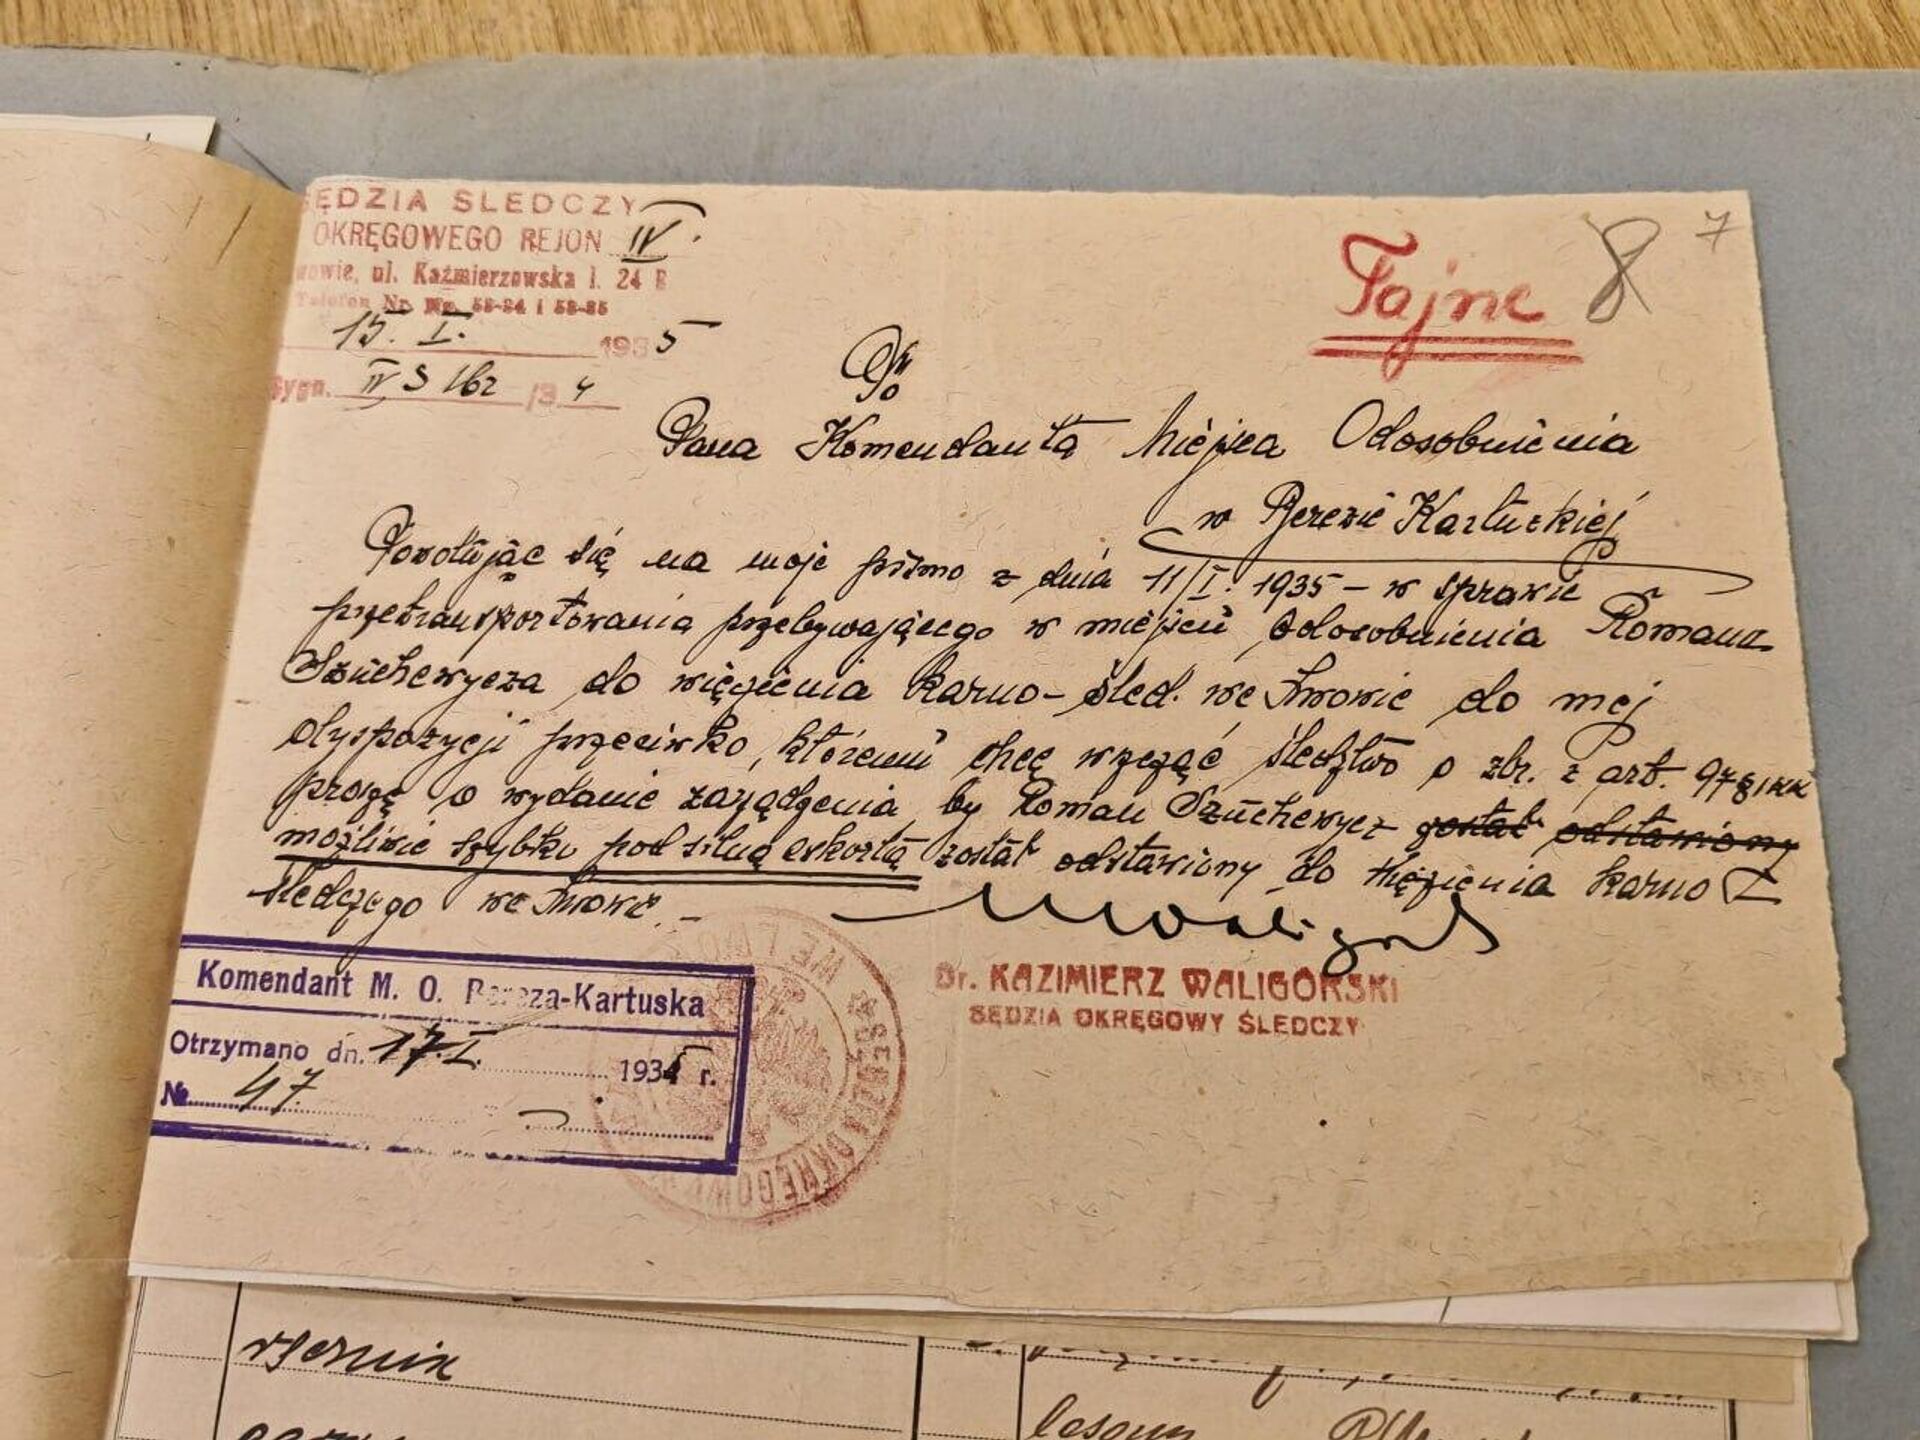 SĘDZIA ŚLEDCZY
OKRĘGOWEGO REJON IV.
wowie, ul. Kaźmierzowska l. 24 B
Telefon Nr. 58-84 i 58-85
15. I. 1935
Sygn. IV S 162 /34
Tajne
8 7
Do
Pana Komendanta Miejsca Odosobnienia
w Berezie Kartuzkiej
Powołując się na moje pismo z dnia 11/I. 1935 – w sprawie
przetransportowania przebywającego w miejscu Odosobnienia Romana
Szuchewycza do więzienia karno-śled. we Lwowie do mej
dyspozycji przeciwko, któremu chcę wszcząć śledztwo o zbr. z art. 97 § 1 KK
proszę o wydanie zarządzenia by Roman Szuchewycz został odstawiony
możliwie szybko pod silną eskortą został odstawiony do więzienia karno
śledczego we Lwowie. –
Dr. KAZIMIERZ WALIGÓRSKI
SĘDZIA OKRĘGOWY ŚLEDCZY
Komendant M. O. Bereza-Kartuska
Otrzymano dn. 17. I. 1935 r.
№ 47
WE LWOWIE
SĘDZIA OKRĘGOWY